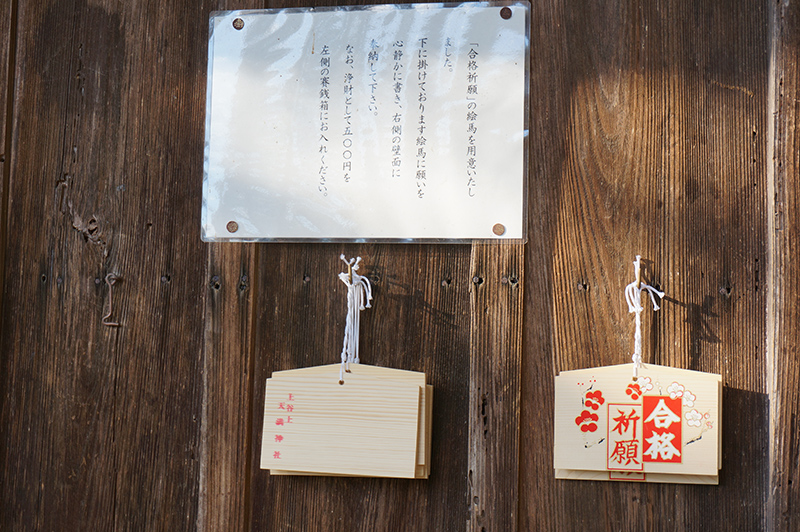 「合格祈願」の絵馬を用意いたし
ました。
下に掛けております絵馬に願いを
心静かに書き、右側の壁面に
奉納して下さい。
なお、浄財として五〇〇円を
左側の賽銭箱にお入れください。
上谷上
天満神社
合格
祈願